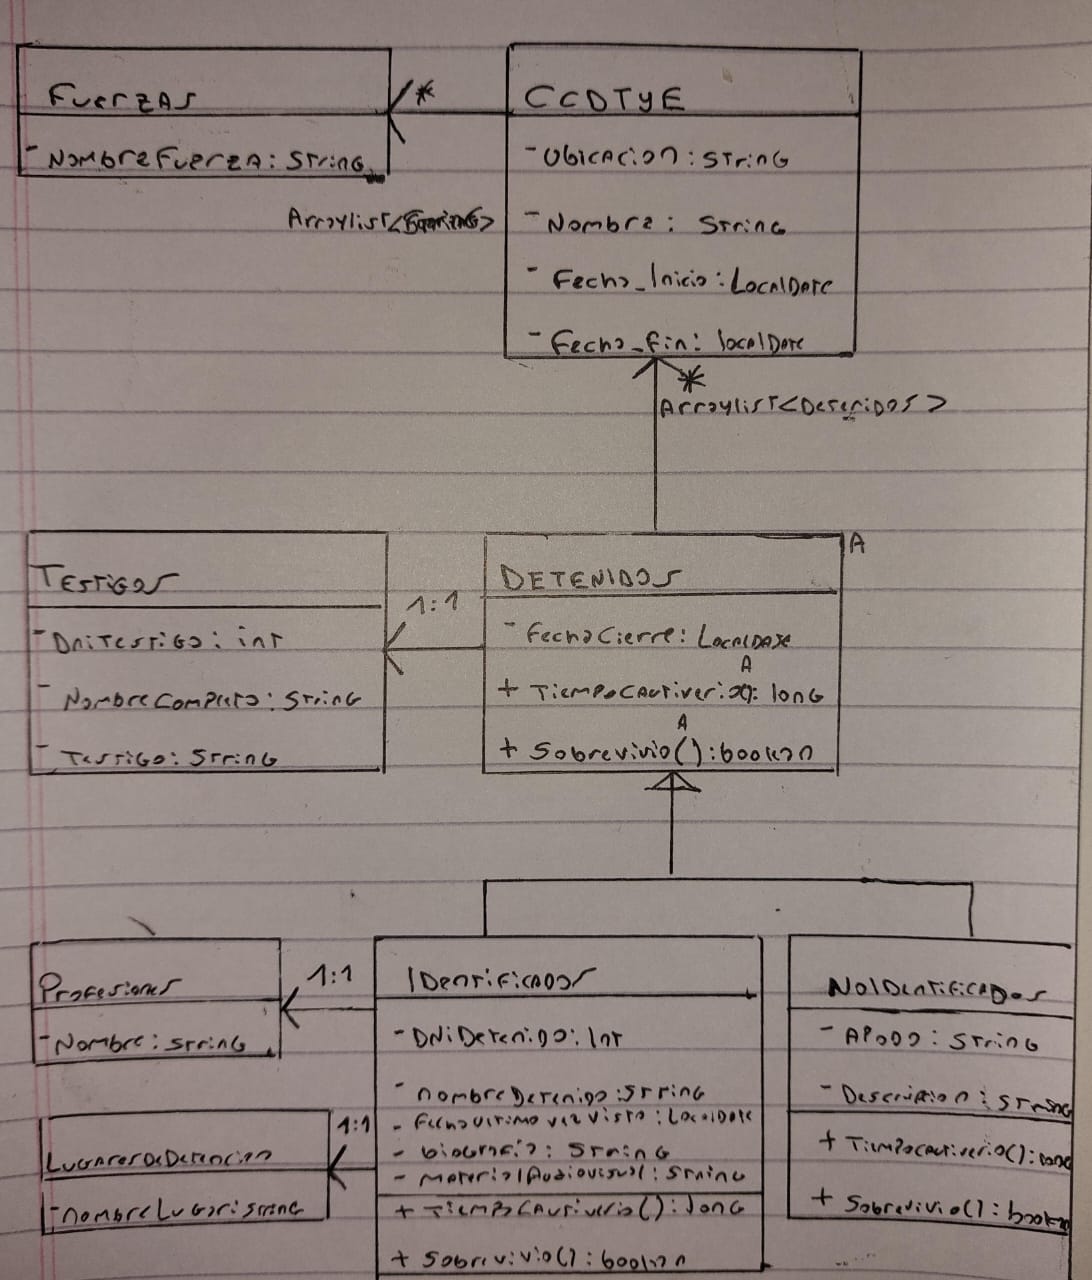 Fuerzas
- NombreFuerza: String
*
CCDTyE
- Ubicacion: String
- Nombre: String
- Fecha_Inicio: LocalDate
- Fecha_fin: localDate
Arraylist<
*
Arraylist<Detenidos>
Testigos
- DniTestigo: int
- NombreCompleto: String
- Testigo: String
1:1
DETENIDOS
A
- FechaCierre: LocalDate
A
+ TiempoCautiverio(): long
A
+ Sobrevivio(): boolean
Profesiones
- Nombre: String
1:1
LugaresDeDetencion
- nombreLugar: String
1:1
IDentificados
- DNiDetenido: Int
- nombreDetenido: String
- FechaUltimavezVisto: LocalDate
- biografia: String
- MaterialAudiovisual: String
+ TiempoCautiverio(): long
+ Sobrevivio(): boolean
NoIDentificados
- APodo: String
- Description: String
+ Tiempocautiverio(): long
+ Sobrevivio(): boolean